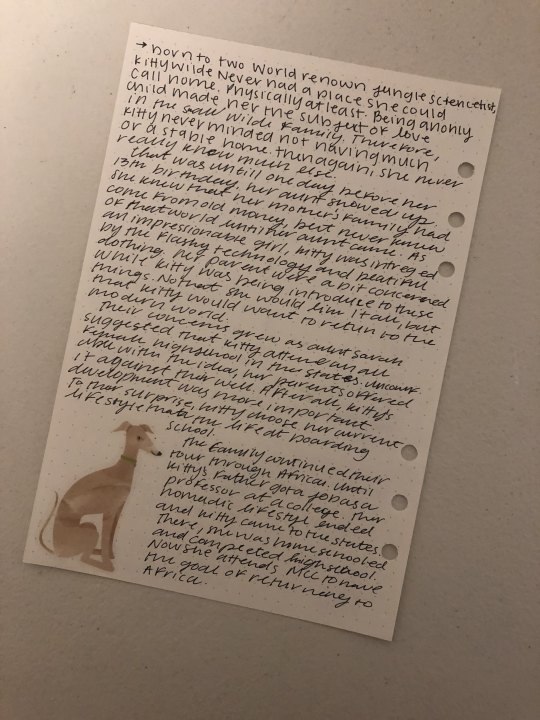 → born to two World renown jungle sciencetist,
Kitty Wilde Never had a place she could
call home. Physically at least. Being an only
child made her the subject of love
in the Wilde Family. Therefore,
Kitty never minded not having much
or a stable home. Then again, she never
really knew much else.
That was untill one day before her
13th birthday, her aunt showed up.
She knew that her mother's family had
come from old money, but never knew
of that world until her aunt came. As
an impressionable girl, Kitty was intreged
by the flashy technology and beatiful
clothing. Her parent were a bit concerned
while Kitty was being introduce to these
things. Not that she would like it all, but
that Kitty would want to return to the
modern world.
Their concerns grew as aunt Sarah
suggested that Kitty attend an all
female highschool in the states. Uncomf-
able with the idea, her parents offered
it against their well. Afterall, Kitty's
development was more important.
To their surprise, Kitty choose her current
lifestyle than the life at boarding
school.
The Family continued their
tour through Africa. Until
Kittys Father got a job as a
professor at a college. Their
nomadic lifestyle ended
and Kitty came to the states.
There, she was homeschooled
and completed highschool.
Now she attends MCC to have
the goal of returneng to
Africa.